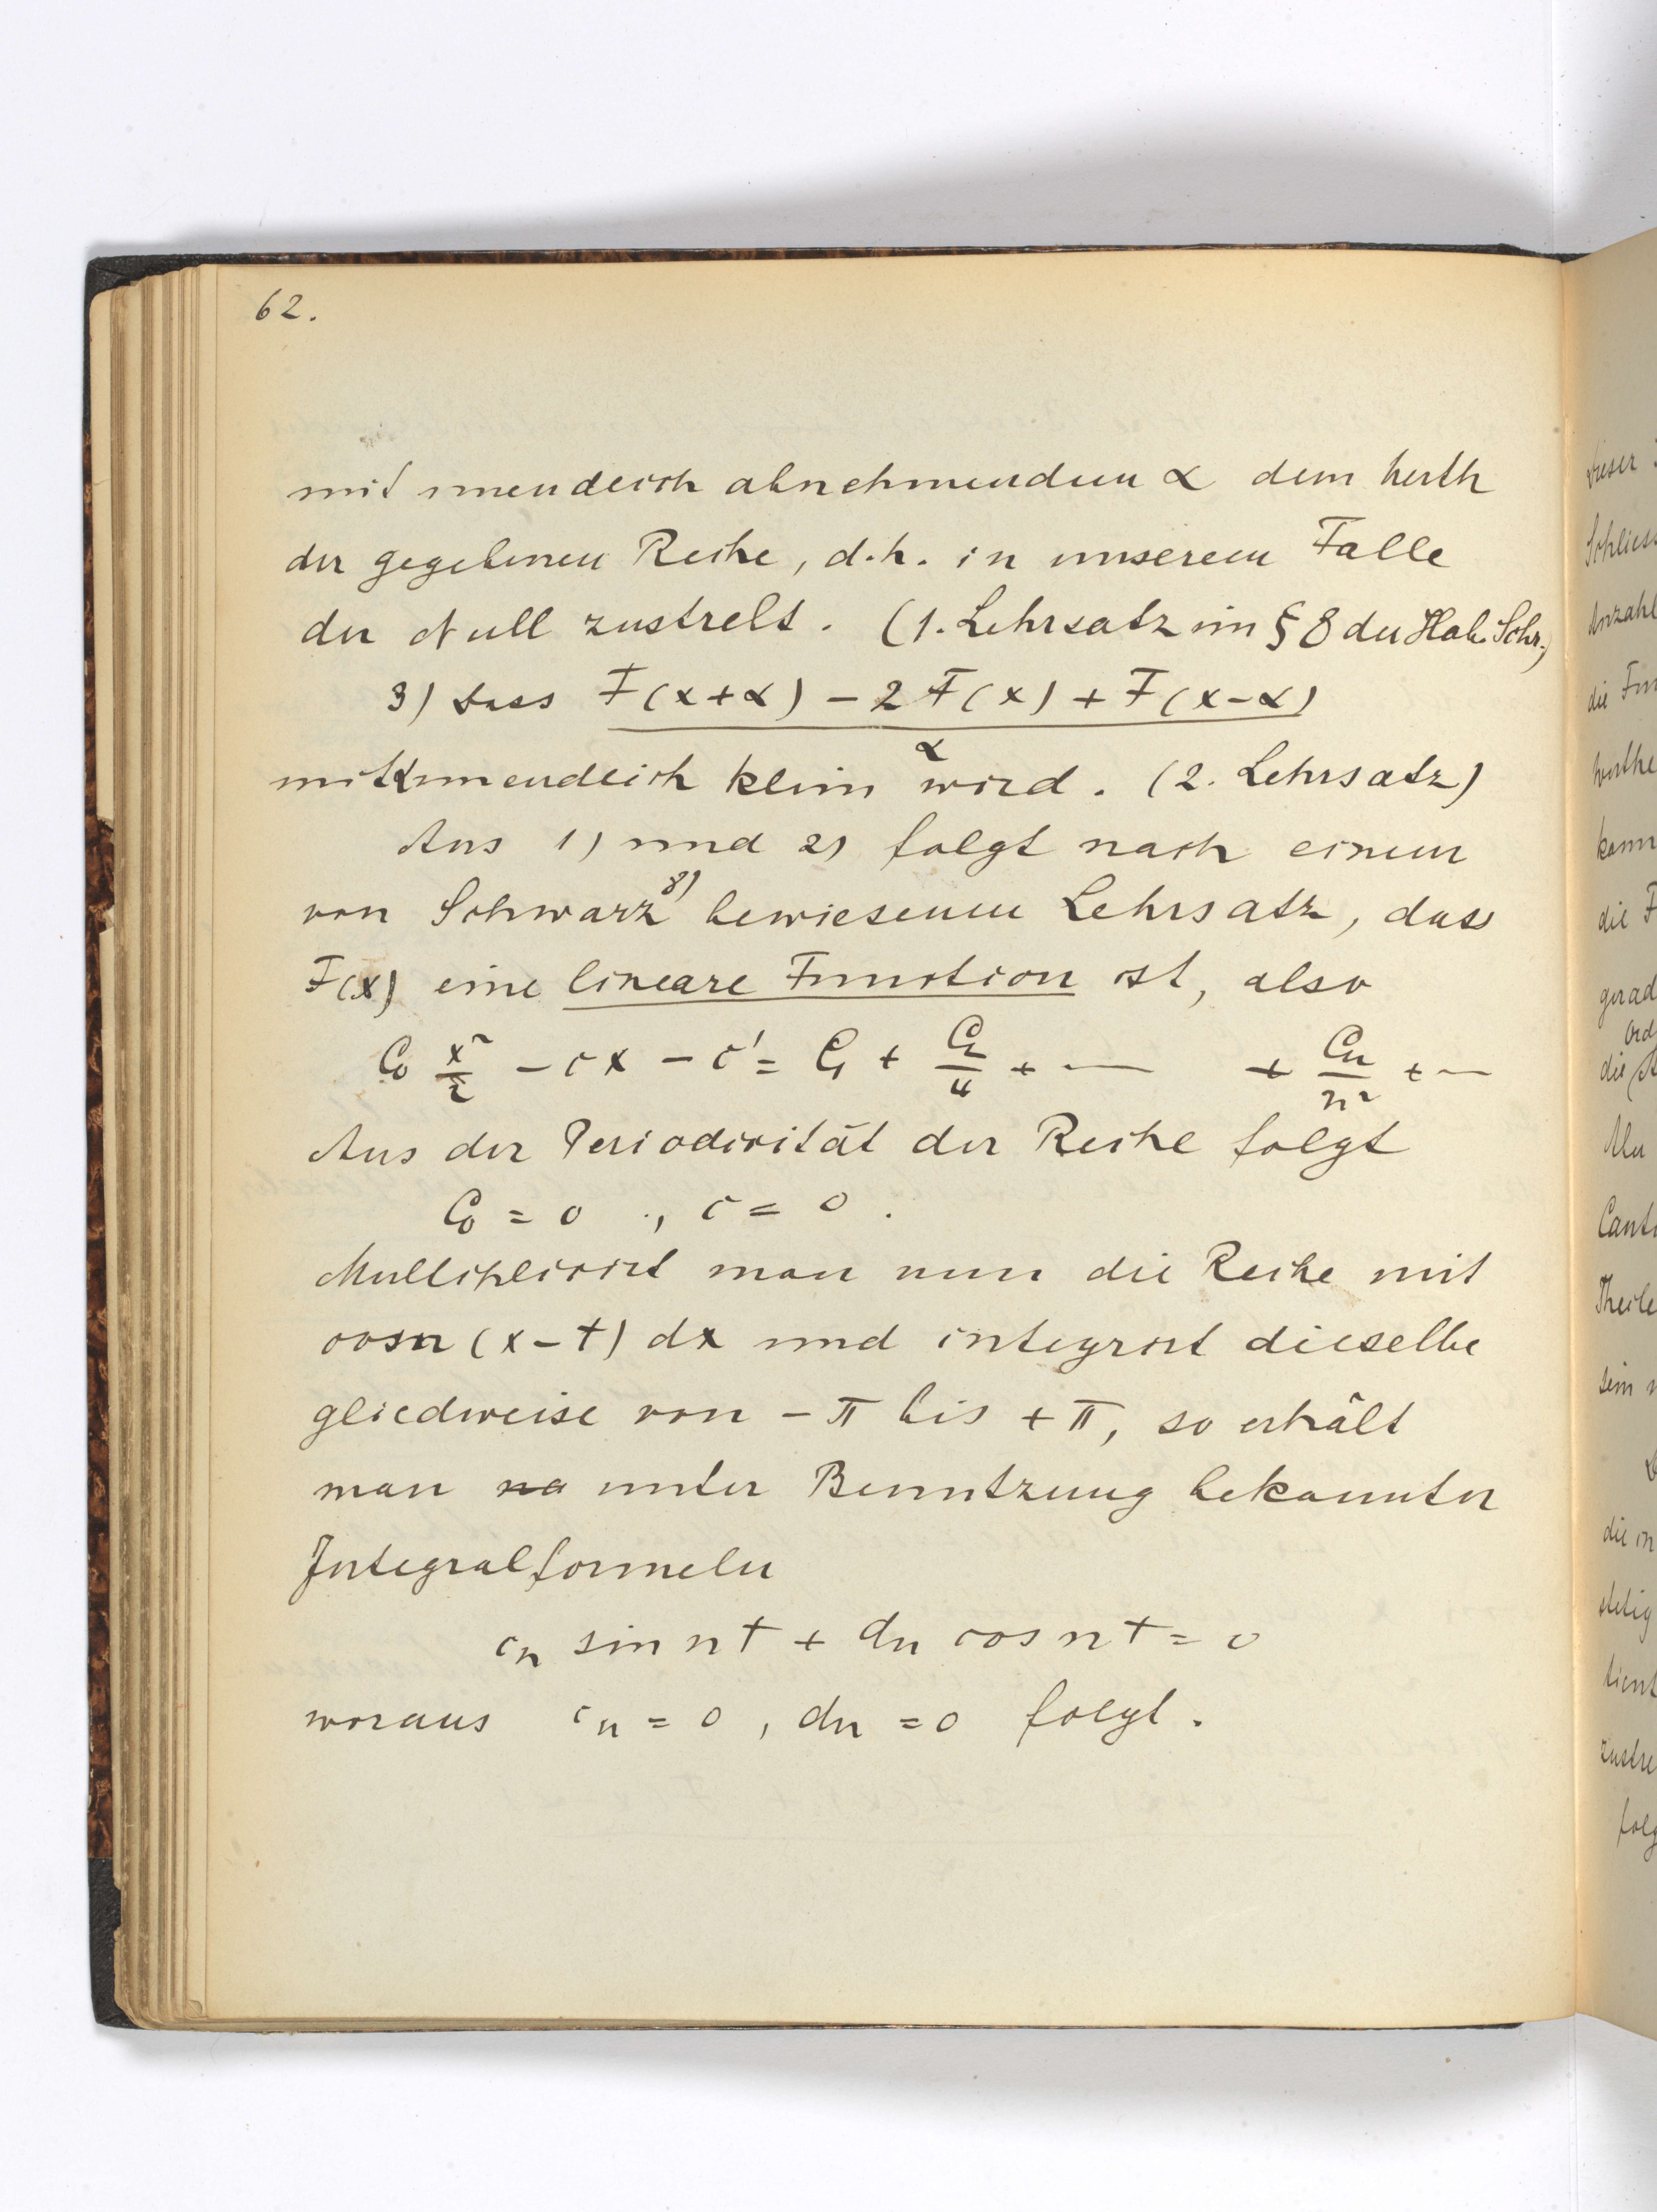 62.
mit unendlich abnehmendem α dem Werth
der gegebenen Reihe, d.h. in unserem Falle
der Null zustrebt. (1. Lehrsatz im § 8 der Hab. Schr.)
3) dass F(x+α) - 2F(x) + F(x-α)
α
mit α unendlich klein wird. (2. Lehrsatz)
Aus 1) und 2) folgt nach einem
von Schwarz 8) bewiesenen Lehrsatz, dass
F(x) eine lineare Function ist, also
C₀ x²/2 - cx - c' = C₁ + C₂/4 + — + Cn/n² + —
Aus der Periodicität der Reihe folgt
C₀ = 0 , c = 0 .
Multiplicirt man nun die Reihe mit
cos n (x-t) dx und integrirt dieselbe
gliedweise von -π bis +π, so erhält
man na unter Benutzung bekannter
Integralformeln
cn sin nt + dn cos nt = 0
woraus cn = 0 , dn = 0 folgt.
dieser
Schliess
Anzahl
die Fun
Werthe
kann
die F
gerad
die
Cant
Theile
sein
die in
stetig
tient
zustre
folg